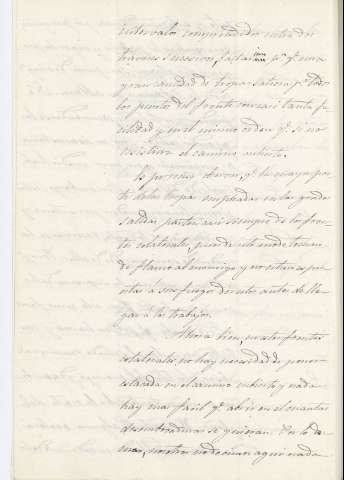 intervalos comprendidos entre dos
 pa. q. una
gran cantidad de tropas saliese pr. todos
los puntos del frente con casi tanta fa-
cilidad y en el mismo orden q. si no
existiera el camino cubierto.
Es preciso observar q. la mayor par-
te de las tropas empleadas en las grandes
salidas parten casi siempre de los fren-
tes colaterales, para de este modo tomar
de flanco al enemigo y no estar espues-
tas á su fuego directo antes de lle-
gar á los trabajos.
Ahora bien, en estos frentes
colaterales no hay necesidad de poner
estacada en el camino cubierto y nada
hay mas facil q. abrir en el cuantas
desembocaduras se quieran. Por lo de-
mas, nosotros no decimos aqui nada